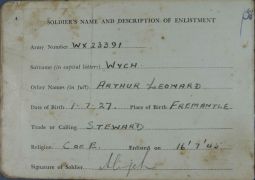 SOLDIER'S NAME AND DESCRIPTION OF ENLISTMENT
Army Number WX23391
Surname (in capital letters) WYCH
Other Names (in full) ARTHUR LEONARD
Date of Birth 1.7.27. Place of Birth FREMANTLE
Trade or Calling STEWARD
Religion. C of E. Enlisted on 16'7'45.
Signature of Soldier.